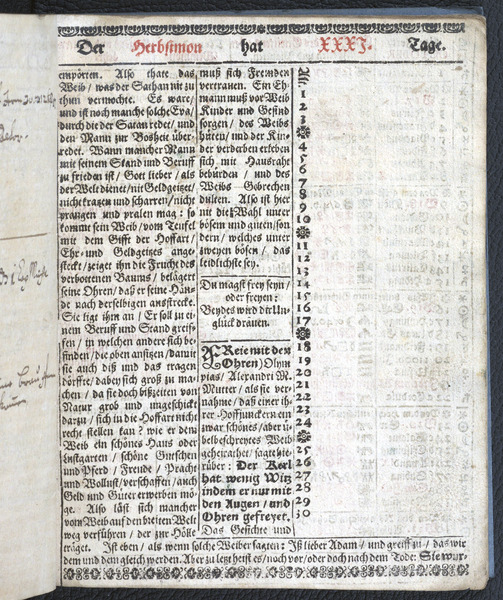 Der Herbstmon hat XXXI. Tage.
empörten. Also thate das
Weib / was der Sathan nit zu
thun vermochte. Es ware /
und ist noch manche solche Eva /
durch die der Satan redet / und
den Mann zur Bosheit über-
redet. Wann mancher Mann
mit seinem Stand und Beruff
zu frieden ist / Gott lieber / als
der Welt dienet / nit Geldgeitzet /
nicht kratzen und scharren / nicht
prangen und pralen mag: so
komm̃t sein Weib / vom Teufel
mit dem Gifft der Hoffart /
Ehr- und Geldgeitzes ange-
steckt / zeiget ihn die Frucht des
verbottenen Baums / belägert
seine Ohren / daß er seine Hän-
de nach derselbigen ausstrecke.
Sie ligt ihm an / Er soll zu ei-
nem Beruff und Stand greif-
fen / in welchen andere sich be-
finden / die oben ansitzen / damit
sie auch diß und das tragen
dörffte / dabey sich groß zu ma-
chen / da sie doch bißzeiten von
Natur grob und ungeschickt
darzu / sich in die Hoffart nicht
recht stellen kan? wie er dem
Weib ein schönes Haus oder
Lustgarten / schöne Gutschen
und Pferd / Freude / Pracht
und Wollust / verschaffen / auch
Geld und Güter erwerben mö-
ge. Also läst sich mancher
vom Weib auf den breiten Welt
weg verführen / der zur Hölle
träget. Ist eben / als wenn solche Weiber sagen: Iß lieber Adam / und greiff zu / das wir
dem und dem gleich werden. Aber zu letzt heist es / noch vor / oder doch nach dem Tode: Sie wur-
muß sich Fremden
vertrauen. Ein Eh-
mann muß vor Weib
Kinder und Gesind
sorgen / des Weibs
hüten / und der Kin-
der verderben erleben
sich mit Hausraht
bebürden / und des
Weibs Gebrechen
dulten. Also ist hier
nit die Wahl unter
bösem und guten / son
dern / welches unter
zweyen bösen / das
leidlichste sey.
Du magst frey seyn /
oder freyen:
Beydes wird dir Un-
glück dräuen.
FReie mit den
Ohren) Olym
pias / Alexandri M.
Mutter / als sie ver-
nahme / daß einer ih-
rer Hoffjunckern ein
zwar schönes / aber ü-
belbeschreytes Weib
geheirathet / sagte hie-
rüber: Der Kerl
hat wenig Witz
indem er nur mit
den Augen / und
Ohren gefreyet.
Das Gesichte und
1
2
3
4
5
6
7
8
9
10
11
12
13
14
15
16
17
18
19
20
21
22
23
24
25
26
27
28
29
30